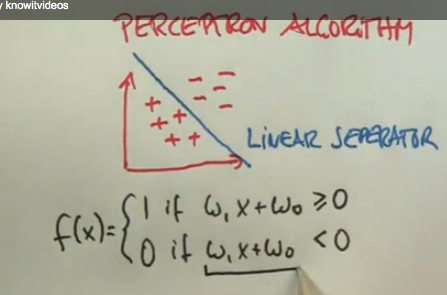 y knowitvideos
PERCEPTRON ALGORITHM
LINEAR SEPERATOR
f(x)={1 if ω₁x+ω₀ ≥0
0 if ω₁x+ω₀ <0